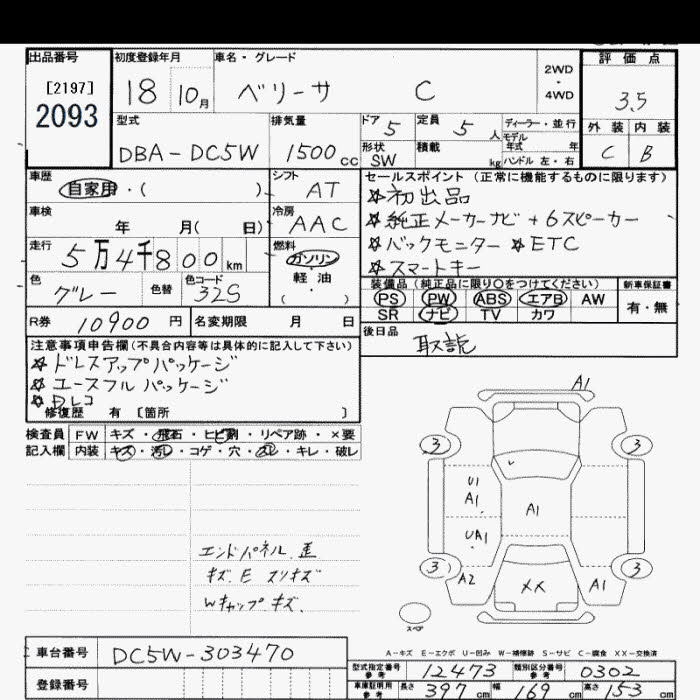 出品番号
[2197]
2093
初度登録年月
18 10月
車名・グレード
ベリーサ C
2WD
・
4WD
評価点
3.5
外装 内装
C B
型式
DBA-DC5W
排気量
1500cc
ドア 5
定員 5人
形状 SW
積載 kg
ディーラー・並行
モデル
年式 年
ハンドル 左・右
車歴
自家用・( )
シフト
AT
車検
年 月( 日)
冷房
AAC
走行
5万4千800km
燃料
ガソリン
軽・油
・( )
色
グレー
色替
色コード
32S
R券 10900円
名変期限 月 日
セールスポイント(正常に機能するものに限ります)
☆初出品
☆純正メーカーナビ+6スピーカー
☆バックモニター ☆ETC
☆スマートキー
装備品(純正品に限り○をつけてください)
新車保証書
PS PW ABS エアB AW
SR ナビ TV カワ
有・無
後日品
取説
注意事項申告欄(不具合内容等は具体的に記入して下さい)
☆ドレスアップパッケージ
☆ユースフルパッケージ
☆Dレコ
修復歴 有 [箇所 ]
検査員
記入欄
FW キズ・飛石・ヒビ割・リペア跡・×要
内装 キズ・汚レ・コゲ・穴・スレ・キレ・破レ
エンドパネル 歪
キズ、E スリキズ
Wキャップキズ、
A1
3 3
U1
A1
A1
UA1
3 3
A2
XX
A1
スペア
A-キズ E-エクボ U-凹み W-補修跡 S-サビ C-腐食 XX-交換済
車台番号 DC5W-303470
登録番号
型式指定番号
参考
12473
類別区分番号
参考
0302
車庫証明用
参考
長さ 397cm 幅 169cm 高さ 153cm